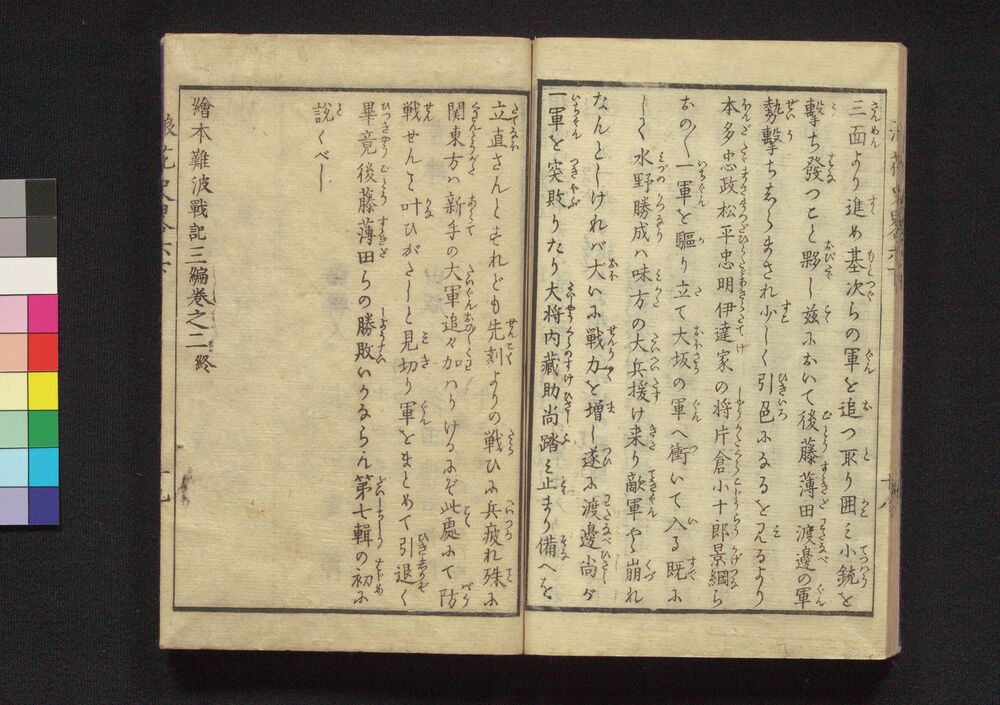 三面より進め基次らの軍を追つ取り囲ミ小銃を
撃ち發つこと夥し茲において後藤薄田渡邊の軍
勢撃ちしらまされ少しく引色になるを見るより
本多忠政松平忠明伊達家の将片倉小十郎景綱ら
おの〳〵一軍を驅り立て大坂の軍へ衝いて入る既に
しく水野勝成ハ味方の大兵援け来り敵軍やゝ崩れ
なんとしけれバ大いに戦力を増し遂に渡邊尚が
一軍を突敗りたり大将内藏助尚踏ミ止まり備へを
立直さんとすれども先刻よりの戦ひに兵疲れ殊に
関東方ハ新手の大軍追々加ハりけるにぞ此處にて防
戦せんこと叶ひがたしと見切り軍をまとめて引退く
畢竟後藤薄田らの勝敗いかるらん第七輯の初に
説くべし
繪本難波戰記三編巻之二終